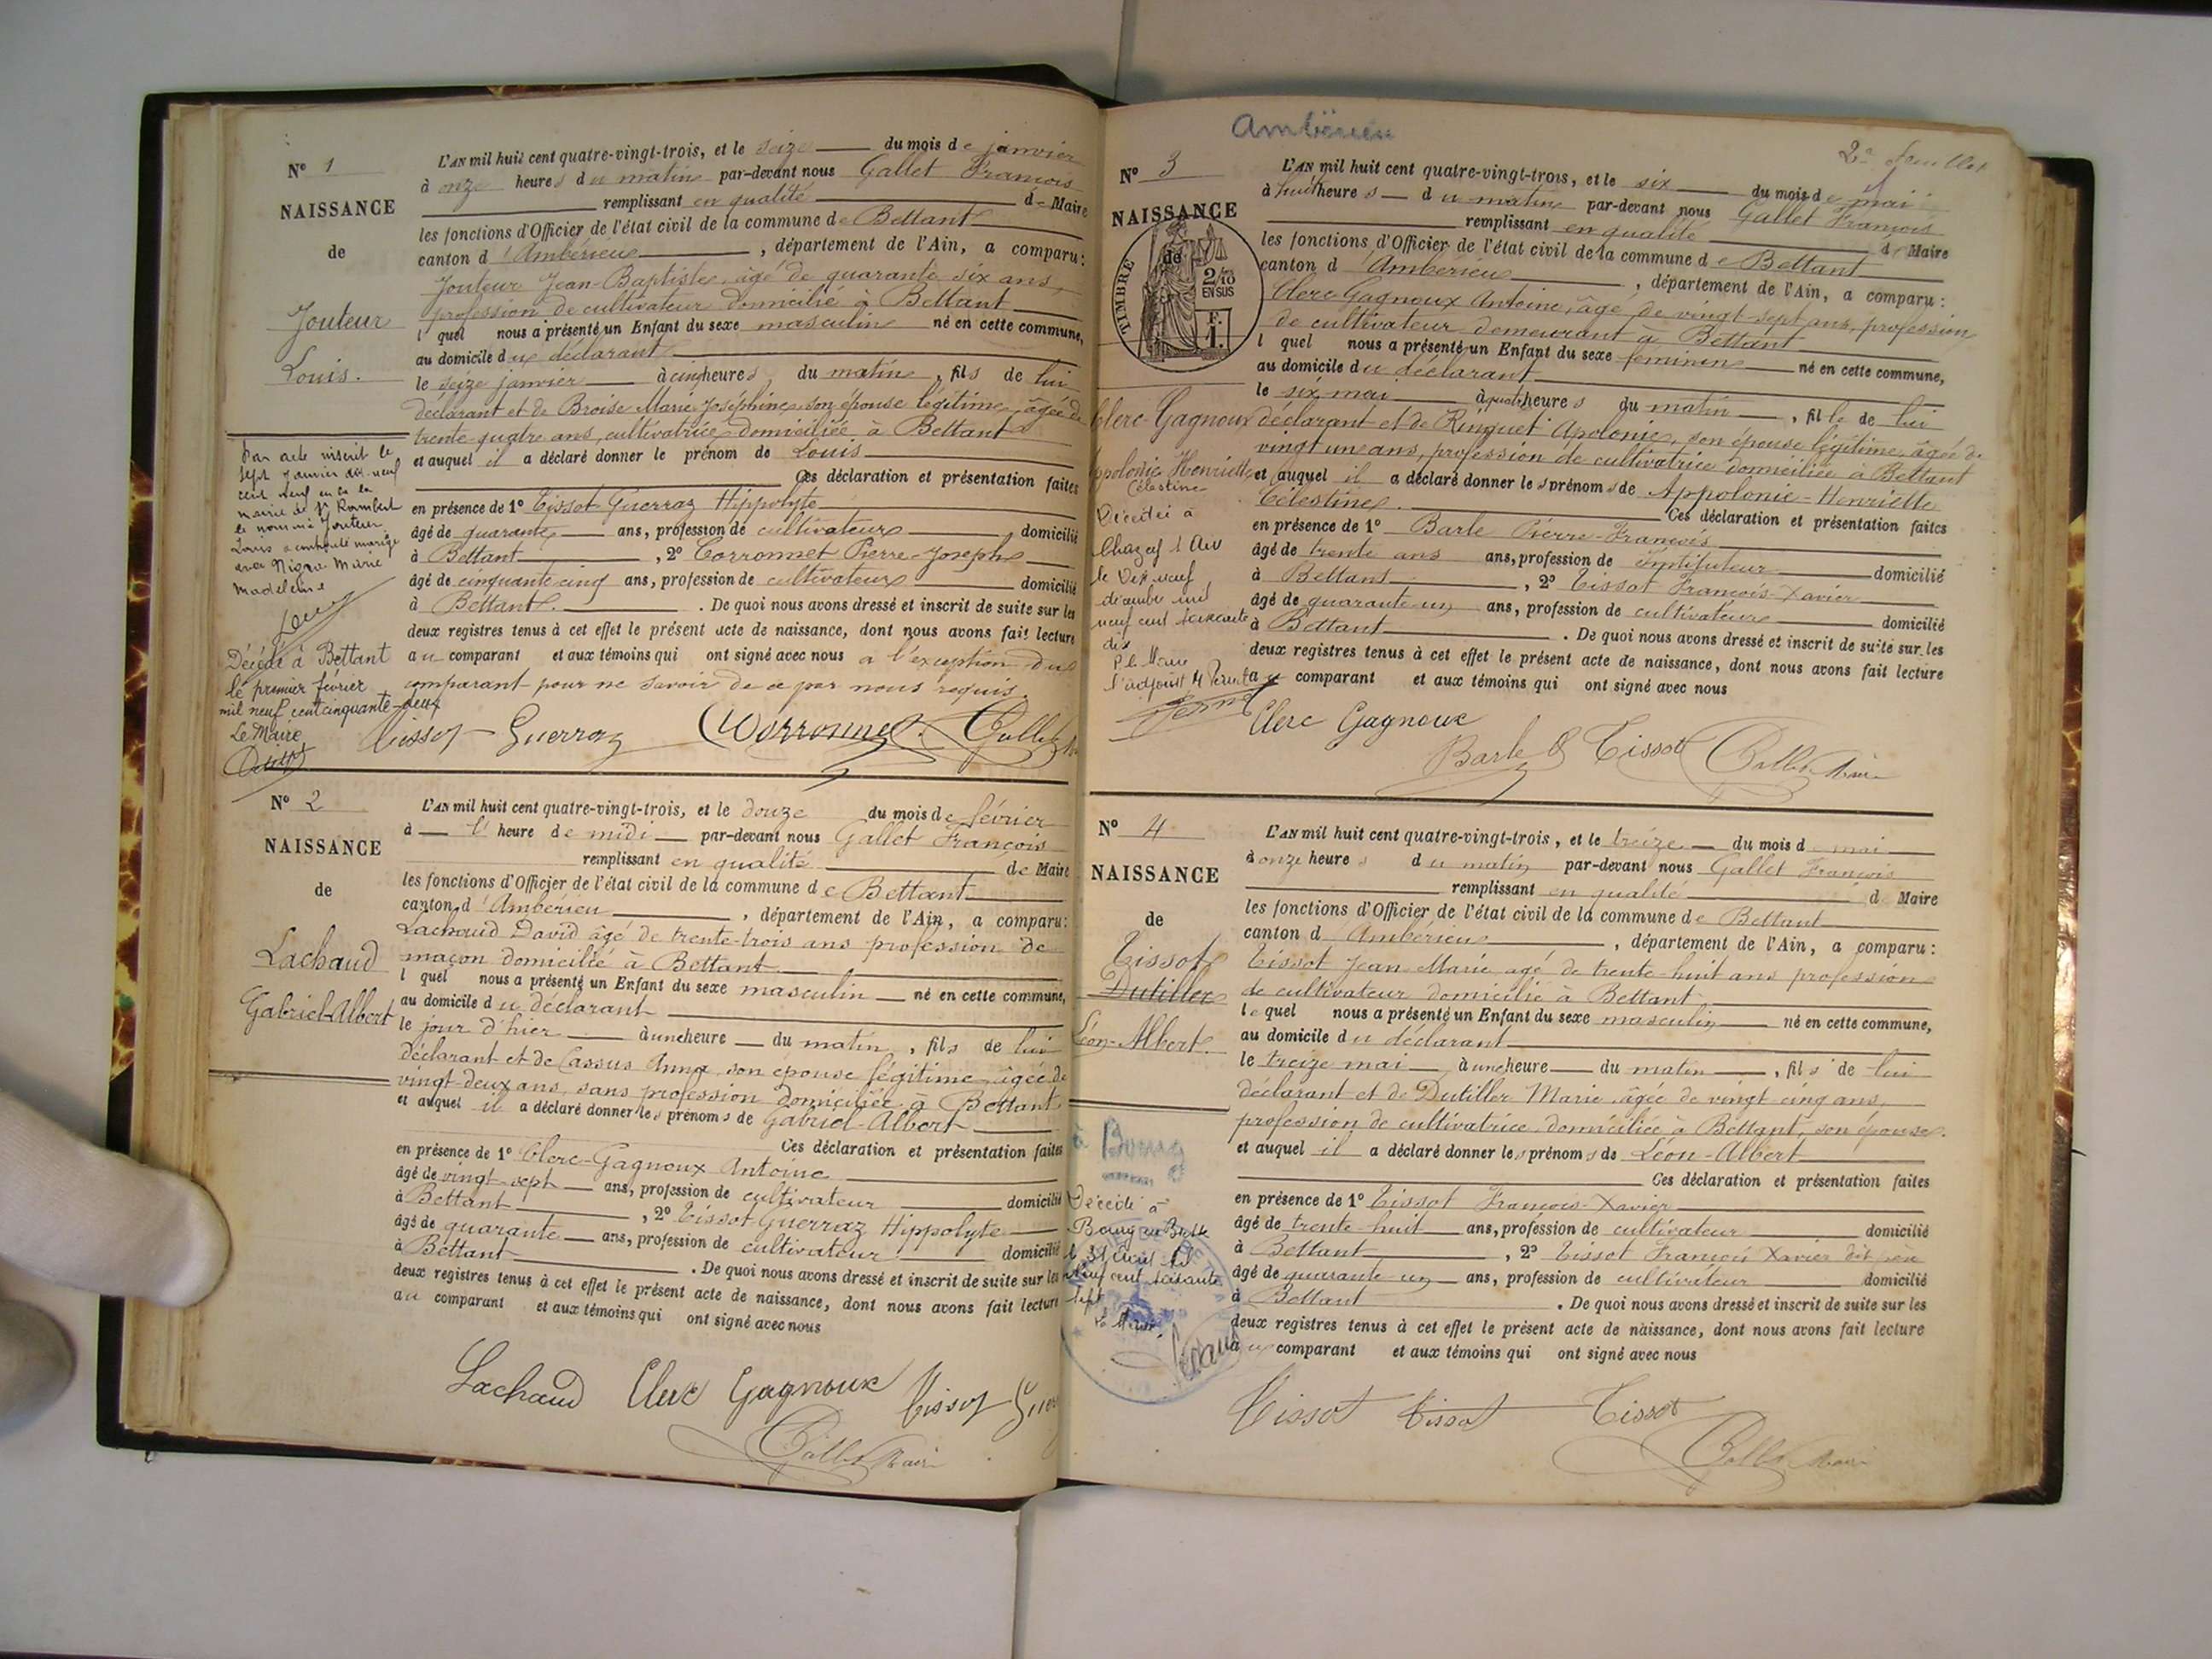 N° 1
NAISSANCE
de
Jouteur
Louis.
Par acte inscrit le
sept Janvier dix-neuf
cent neuf en la
mairie de St Rambert
le nommé Jouteur
Louis a contracté mariage
avec Marie
Madeleine
Décédé à Bettant
le premier février
mil neuf cent cinquante-deux
Le Maire
L'AN mil huit cent quatre-vingt-trois, et le seize du mois de janvier
à onze heures du matin par-devant nous Gallet François
remplissant en qualité de Maire
les fonctions d'Officier de l'état civil de la commune de Bettant
canton d'Ambérieu, département de l'Ain, a comparu:
Jouteur Jean-Baptiste, âgé de quarante six ans,
profession de cultivateur domicilié à Bettant
l quel nous a présenté un Enfant du sexe masculin né en cette commune,
au domicile du déclarant
le seize janvier à cinq heures du matin, fils de lui
déclarant et de Broise Marie Joséphine son épouse légitime, âgée de
trente-quatre ans, cultivatrice domiciliée à Bettant
et auquel il a déclaré donner le prénom de Louis
Ces déclaration et présentation faites
en présence de 1° Tissot-Guerraz Hippolyte
âgé de quarante ans, profession de cultivateur domicilié
à Bettant, 2° Corronnet Pierre-Joseph
âgé de cinquante cinq ans, profession de cultivateur domicilié
à Bettant. De quoi nous avons dressé et inscrit de suite sur les
deux registres tenus à cet effet le présent acte de naissance, dont nous avons fait lecture
au comparant et aux témoins qui ont signé avec nous a l'exception du
comparant pour ne savoir de ce par nous requis.
Tissot-Guerraz Corronnet Gallet
N° 2
NAISSANCE
de
Lachaud
Gabriel-Albert
L'AN mil huit cent quatre-vingt-trois, et le douze du mois de février
à l' heure de midi par-devant nous Gallet François
remplissant en qualité de Maire
les fonctions d'Officier de l'état civil de la commune de Bettant
canton d'Ambérieu, département de l'Ain, a comparu:
Lachaud David âgé de trente-trois ans profession de
maçon domicilié à Bettant
l quel nous a présenté un Enfant du sexe masculin né en cette commune,
au domicile du déclarant
le jour d'hier à une heure du matin, fils de lui
déclarant et de Cassus Anna, son épouse légitime âgée de
vingt-deux ans, sans profession domiciliée à Bettant
et auquel il a déclaré donner les prénoms de Gabriel-Albert
Ces déclaration et présentation faites
en présence de 1° Clerc-Gagnoux Antoine
âgé de vingt-sept ans, profession de cultivateur domicilié
à Bettant, 2° Tissot Guerraz Hippolyte
âgé de quarante ans, profession de cultivateur domicilié
à Bettant. De quoi nous avons dressé et inscrit de suite sur les
deux registres tenus à cet effet le présent acte de naissance, dont nous avons fait lecture
au comparant et aux témoins qui ont signé avec nous
Lachaud Clerc Gagnoux Tissot
Gallet Maire
Ambérieu
2e feuillet
N° 3
NAISSANCE
de
TIMBRE
2/10
EN SUS
F.
1.
Clerc-Gagnoux
Appolonie Henriette
Célestine
Décédée à
Chazey s/ Ain
le Dix-neuf
décembre mil
neuf cent soixante
dix
P. le Maire
l'adjoint
L'AN mil huit cent quatre-vingt-trois, et le six du mois de mai
à huit heures du matin par-devant nous Gallet François
remplissant en qualité de Maire
les fonctions d'Officier de l'état civil de la commune de Bettant
canton d'Ambérieu, département de l'Ain, a comparu:
Clerc-Gagnoux Antoine, âgé de vingt-sept ans, profession
de cultivateur demeurant à Bettant
l quel nous a présenté un Enfant du sexe féminin né en cette commune,
au domicile du déclarant
le six mai à quatre heures du matin, fille de lui
déclarant et de Rinquet Apolonie, son épouse légitime, âgée de
vingt un ans, profession de cultivatrice domiciliée à Bettant
et auquel il a déclaré donner les prénoms de Appolonie-Henriette
Célestine.
Ces déclaration et présentation faites
en présence de 1° Barle Pierre-François
âgé de trente ans ans, profession de Instituteur domicilié
à Bettant, 2° Tissot François-Xavier
âgé de quarante-un ans, profession de cultivateur domicilié
à Bettant. De quoi nous avons dressé et inscrit de suite sur les
deux registres tenus à cet effet le présent acte de naissance, dont nous avons fait lecture
au comparant et aux témoins qui ont signé avec nous
Clerc Gagnoux
Barle Tissot Gallet Maire
N° 4
NAISSANCE
de
Tissot
Dutiller
Léon-Albert.
à Bourg
Décédé à
Bourg en Bresse
neuf cent soixante
sept
Le Maire,
L'AN mil huit cent quatre-vingt-trois, et le treize du mois d mai
à onze heures du matin par-devant nous Gallet François
remplissant en qualité de Maire
les fonctions d'Officier de l'état civil de la commune de Bettant
canton d'Ambérieu, département de l'Ain, a comparu:
Tissot Jean-Marie, agé de trente-huit ans profession
de cultivateur domicilié à Bettant
lequel nous a présenté un Enfant du sexe masculin né en cette commune,
au domicile du déclarant
le treize mai à une heure du matin, fils de lui
déclarant et de Dutiller Marie, âgée de vingt cinq ans,
profession de cultivatrice domiciliée à Bettant, son épouse.
et auquel il a déclaré donner les prénoms de Léon-Albert
Ces déclaration et présentation faites
en présence de 1° Tissot François-Xavier
âgé de trente-huit ans, profession de cultivateur domicilié
à Bettant, 2° Tissot François Xavier dit
âgé de quarante-un ans, profession de cultivateur domicilié
à Bettant. De quoi nous avons dressé et inscrit de suite sur les
deux registres tenus à cet effet le présent acte de naissance, dont nous avons fait lecture
au comparant et aux témoins qui ont signé avec nous
Tissot Tissot Tissot
Gallet Maire